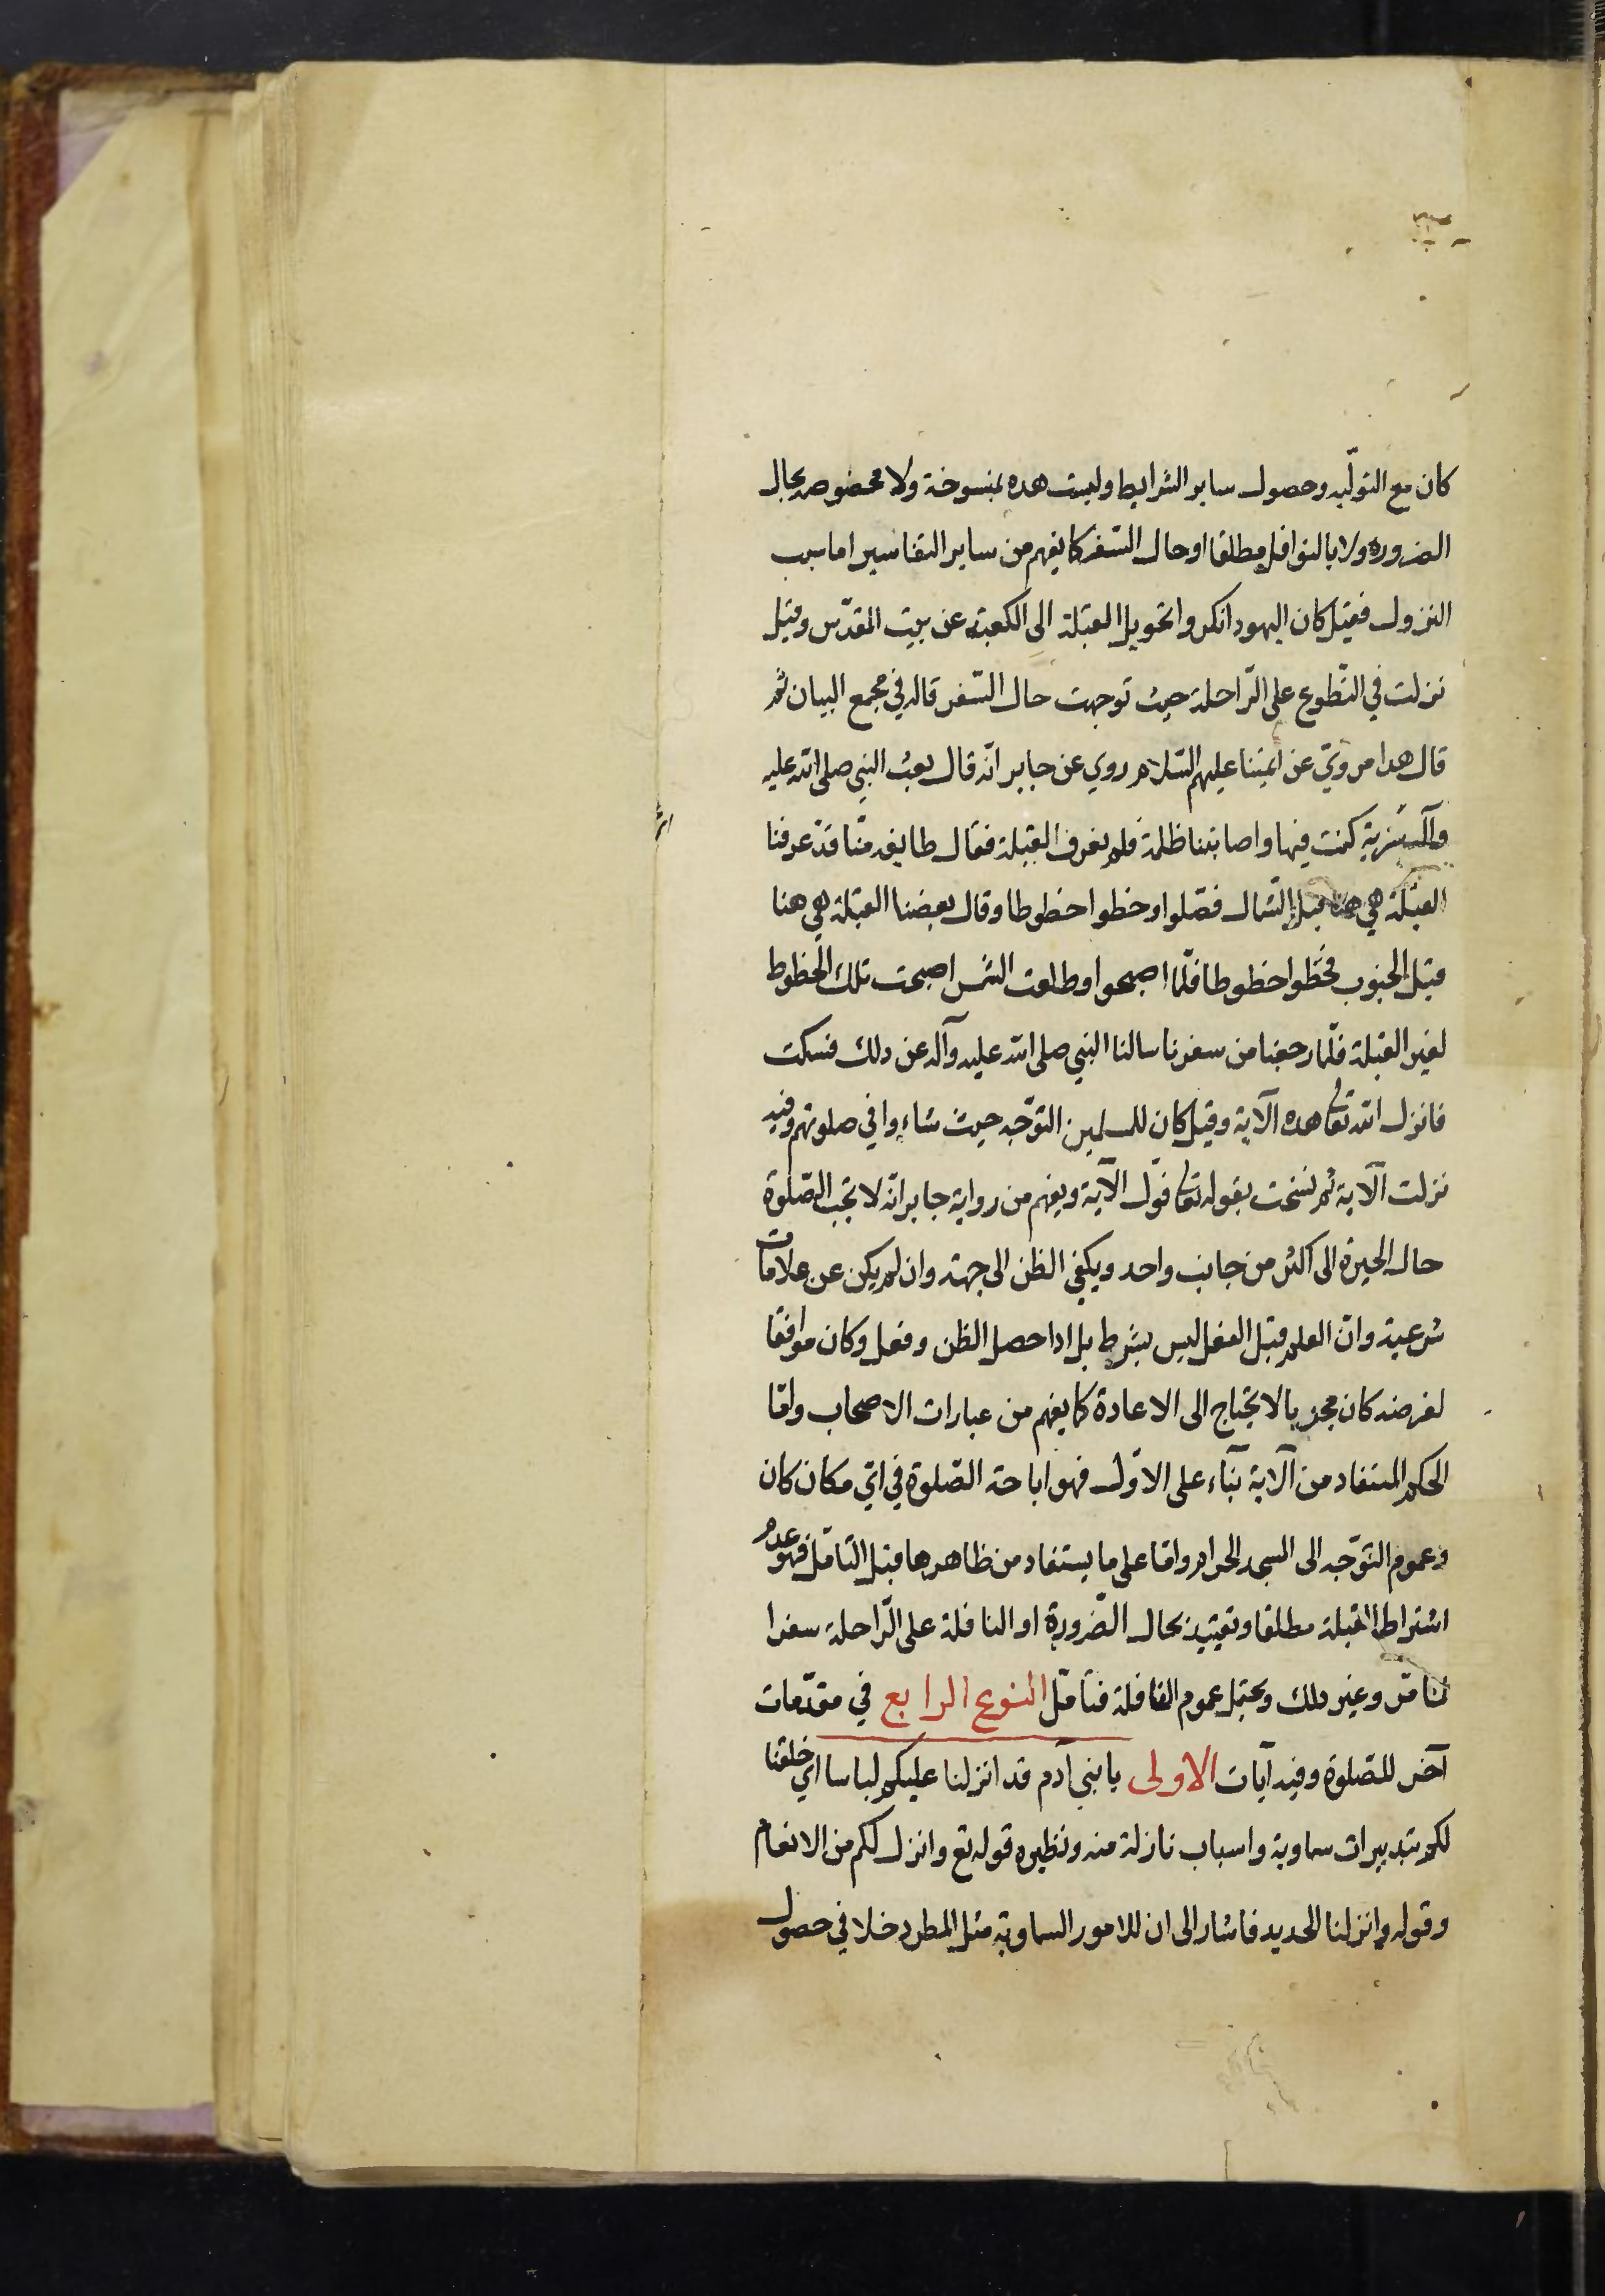 كان مع التولّيه وحصول ساير الشرايط وليست هده بمنسوخة ولا محضوصه بحال
الضرورة ولا بالنوافل مطلقا او حال السّفر كما يفهم من ساير التفاسير اما سبب
النزول فقيل كان اليهود انكروا تحويل القبلة الى الكعبة عن بيت المقدّس وقيل
نزلت في التّطوع على الرّاحلة حيث توجهت حال السّفر قاله في مجمع البيان ثم
قال هدا مرويّ عن ائمتنا عليهم السّلام روي عن جابر انّه قال بعث النبي صلى الله عليه
وآله سرية كنت فيها واصابتنا ظلمة فلم يعرف القبلة فقال طايفة منّا قد عرفنا
القبلة هي هنا قبل الشمال فصّلوا وخطوا خطوطا وقال بعضنا القبلة هي هنا
قبل الجنوب فخطّوا خطوطا فلّما اصبحوا وطلعت الشمس اصبحت تلك الخطوط
لغير القبلة فلّما رجعنا من سفرنا سالنا النبي صلى الله عليه وآله عن دلك فسكت
فانزل الله تعا هده الآية وقيل كان للمسلمين التوّجه حيث شاءوا في صلوتهم وفيه
نزلت الآية ثم نسخت بقوله تعا فوّل الآية ويفهم من رواية جابر انّه لا تجب الصّلوة
حال الحيرة الى اكثر من جانب واحد ويكفي الظن الى جهة وان لم يكن عن علامات
شرعية وانّ العلم قبل الفعل ليس بشرط بل ادا حصل الظن وفعل وكان موافقا
لغرضه كان مجزيا لا يحتاج الى الاعادة كما يفهم من عبارات الاصحاب وامّا
الحكم المستفاد من الآية بنآء على الاوّل فهو اباحة الصّلوة في ايّ مكان كان
وعموم التوّجه الى المسجد الحرام وامّا على ما يستفاد من ظاهرها قبل التامّل فهو عدم
اشتراط القبلة مطلقا وتقييده بحال الضّرورة او النافلة على الرّاحلة سفرا
لما مّر وغير دلك ويحتمل عموم القافلة فتامّل النوع الرابع في مقدّمات
آخر للصّلوة وفيه آيات الاولى يا بني آدم قد انزلنا عليكم لباسا اي خلقنا
لكم بتدبيرات سماوية واسباب نازلة منه ونظيره قوله تع وانزل لكم من الانعام
وقوله وانزلنا الحديد فاشار الى ان للامور السماويّة مثل المطر دخلا في حصول